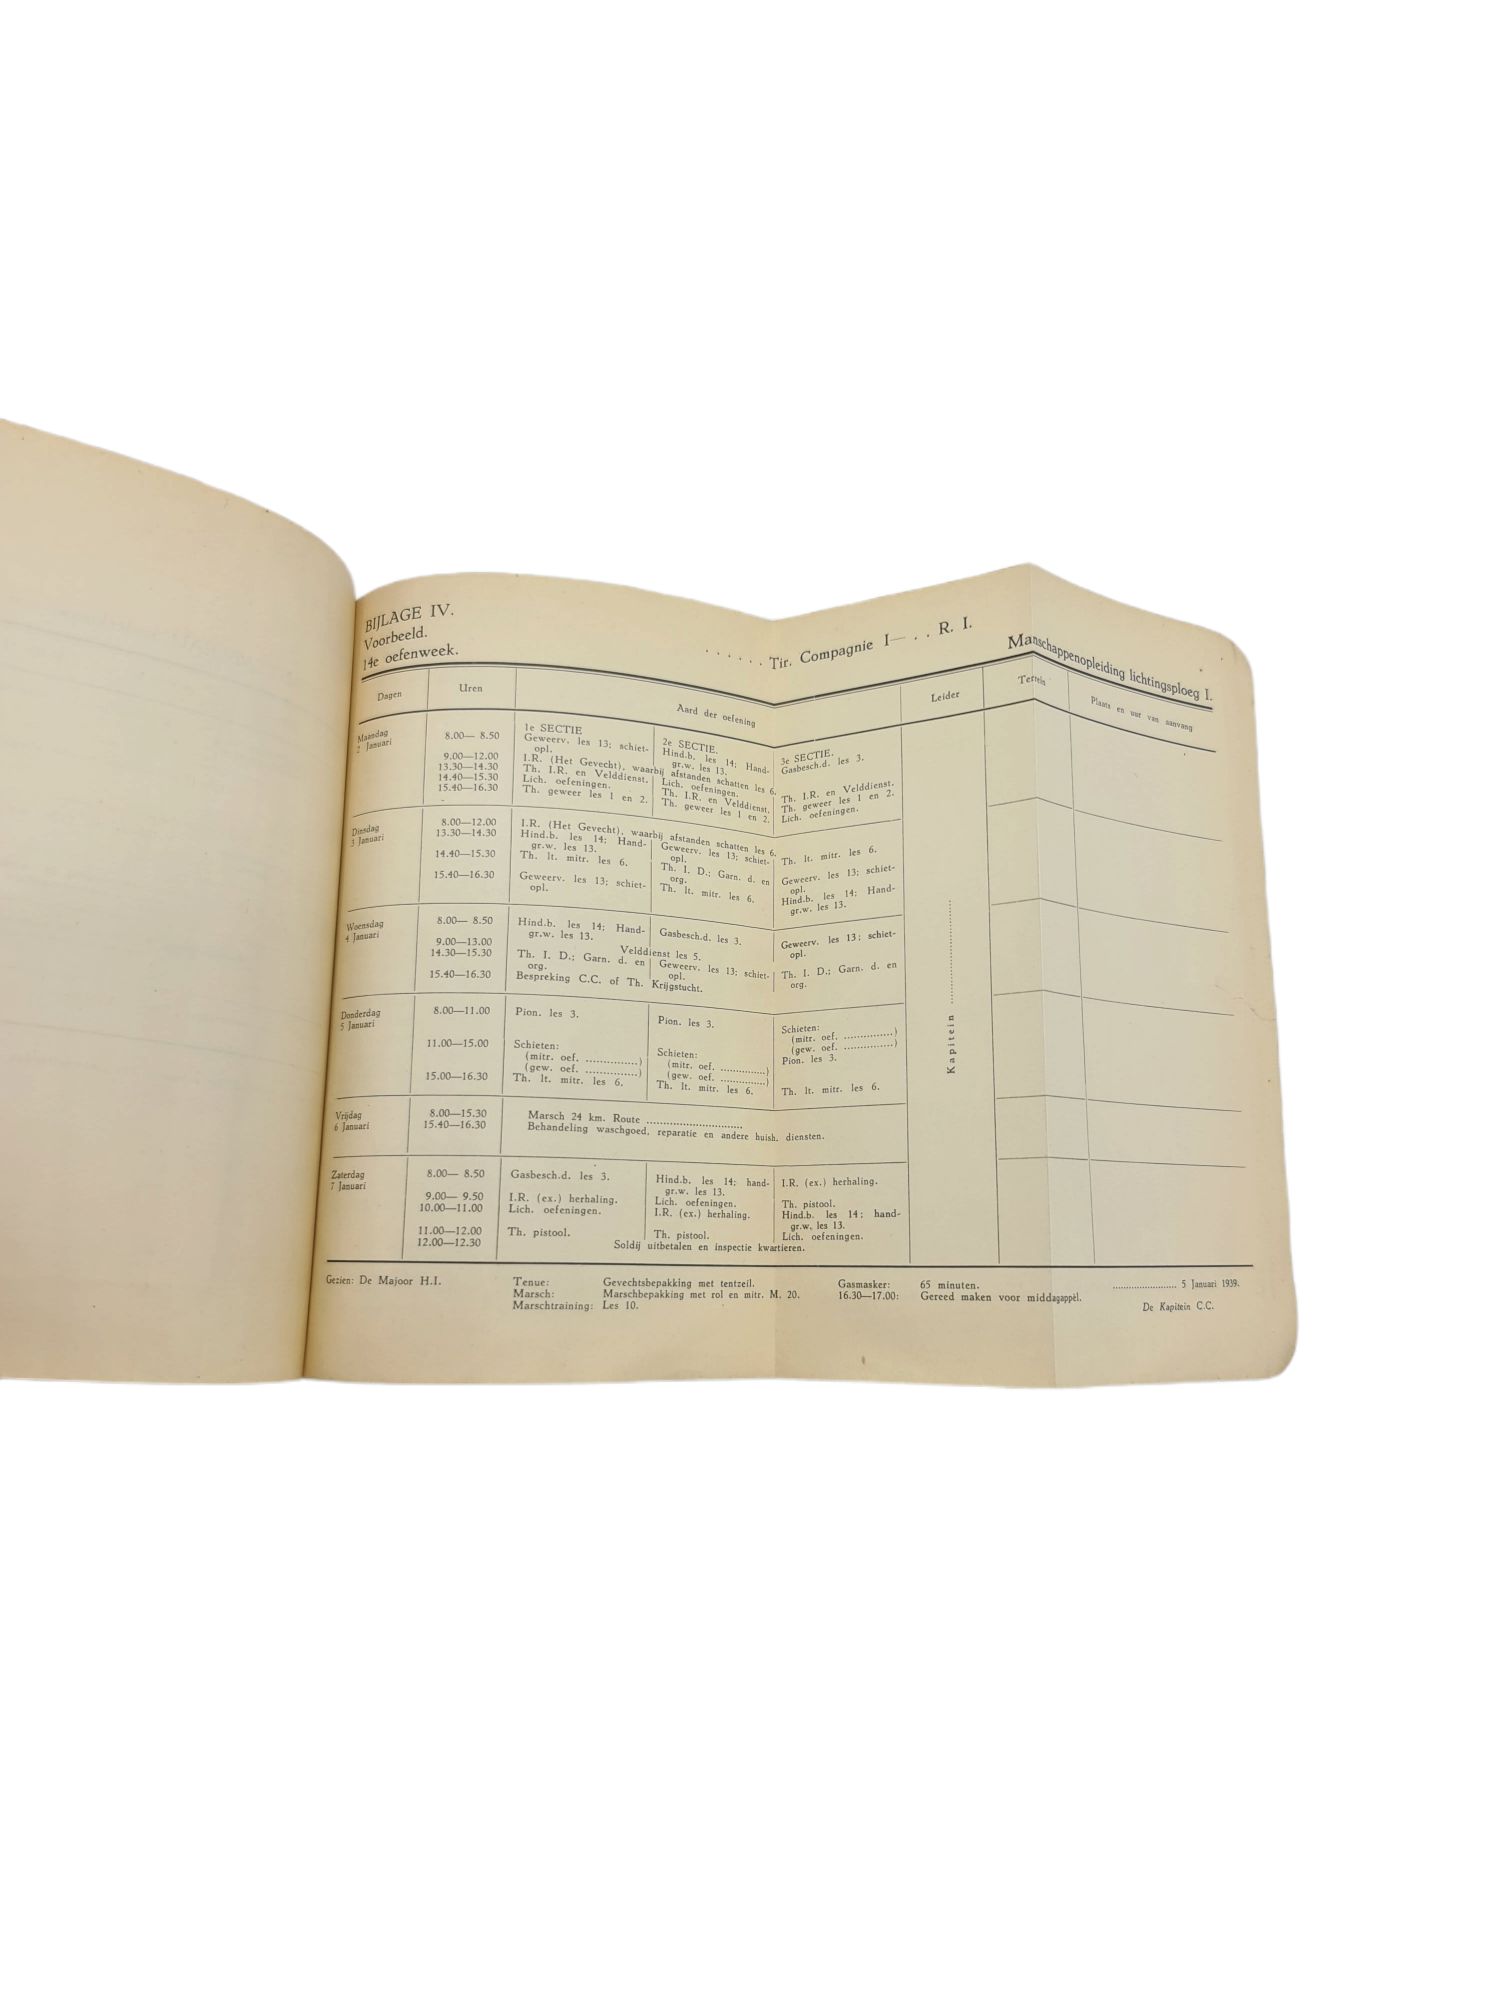 BIJLAGE IV.
Voorbeeld.
14e oefenweek.
. . . . . . Tir. Compagnie I— . . R. I.
Manschappenopleiding lichtingsploeg I.
Dagen Uren Aard der oefening Leider Terrein Plaats en uur van aanvang
1e SECTIE 2e SECTIE. 3e SECTIE.
Maandag 8.00— 8.50 Geweerv. les 13; schiet- Hind.b. les 14; Hand- Gasbesch.d. les 3.
2 Januari opl. gr.w. les 13.
9.00—12.00 I.R. (Het Gevecht), waarbij afstanden schatten les 6.
13.30—14.30 Th. I.R. en Velddienst. Lich. oefeningen. Th. I.R. en Velddienst.
14.40—15.30 Lich. oefeningen. Th. I.R. en Velddienst. Th. geweer les 1 en 2.
15.40—16.30 Th. geweer les 1 en 2. Th. geweer les 1 en 2. Lich. oefeningen.
Dinsdag 8.00—12.00 I.R. (Het Gevecht), waarbij afstanden schatten les 6.
3 Januari 13.30—14.30 Hind.b. les 14; Hand- Geweerv. les 13; schiet- Th. lt. mitr. les 6.
gr.w. les 13. opl.
14.40—15.30 Th. lt. mitr. les 6. Th. I. D.; Garn. d. en Geweerv. les 13; schiet-
org. opl.
15.40—16.30 Geweerv. les 13; schiet- Th. lt. mitr. les 6. Hind.b. les 14; Hand-
opl. gr.w. les 13.
Woensdag 8.00— 8.50 Hind.b. les 14; Hand- Gasbesch.d. les 3. Geweerv. les 13; schiet-
4 Januari gr.w. les 13. opl.
9.00—13.00 Velddienst les 5.
14.30—15.30 Th. I. D.; Garn. d. en Geweerv. les 13; schiet- Th. I. D.; Garn. d. en
org. opl. org.
15.40—16.30 Bespreking C.C. of Th. Krijgstucht.
Donderdag 8.00—11.00 Pion. les 3. Pion. les 3. Schieten:
5 Januari (mitr. oef. ...............)
(gew. oef. ...............)
11.00—15.00 Schieten: Schieten: Pion. les 3.
(mitr. oef. ...............) (mitr. oef. ..............)
(gew. oef. ...............) (gew. oef. ..............)
15.00—16.30 Th. lt. mitr. les 6. Th. lt. mitr. les 6. Th. lt. mitr. les 6.
Vrijdag 8.00—15.30 Marsch 24 km. Route .............................
6 Januari 15.40—16.30 Behandeling waschgoed, reparatie en andere huish. diensten.
Zaterdag 8.00— 8.50 Gasbesch.d. les 3. Hind.b. les 14; hand- I.R. (ex.) herhaling.
7 Januari gr.w. les 13.
9.00— 9.50 I.R. (ex.) herhaling. Lich. oefeningen. Th. pistool.
10.00—11.00 Lich. oefeningen. I.R. (ex.) herhaling. Hind.b. les 14; hand-
gr.w. les 13.
11.00—12.00 Th. pistool. Th. pistool. Lich. oefeningen.
12.00—12.30 Soldij uitbetalen en inspectie kwartieren.
Kapitein ..............................
Gezien: De Majoor H.I. Tenue: Gevechtsbepakking met tentzeil. Gasmasker: 65 minuten. ......................... 5 Januari 1939.
Marsch: Marschbepakking met rol en mitr. M. 20. 16.30—17.00: Gereed maken voor middagappèl.
Marschtraining: Les 10. De Kapitein C.C.